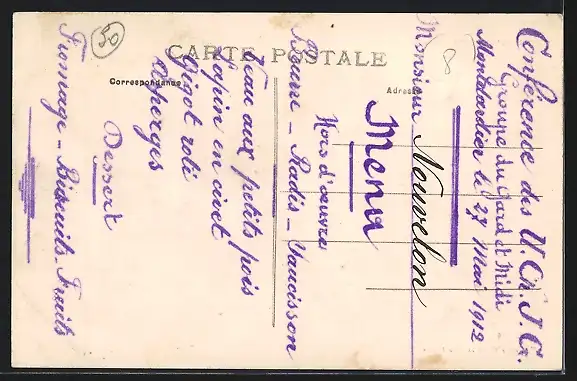 CARTE POSTALE
Correspondance
Adresse
Conférence des U. Ch. J. G.
Groupe du Gard et Midi
Mandardier le 27 Mai 1912
Monsieur Nouvelon
Menu
Hors d'œuvre
Beurre - Radis - Saucisson
Veau aux petits pois
Lapin en civet
Gigot roti
Asperges
Dessert
Fromage - Biscuits - Fruits
50
8